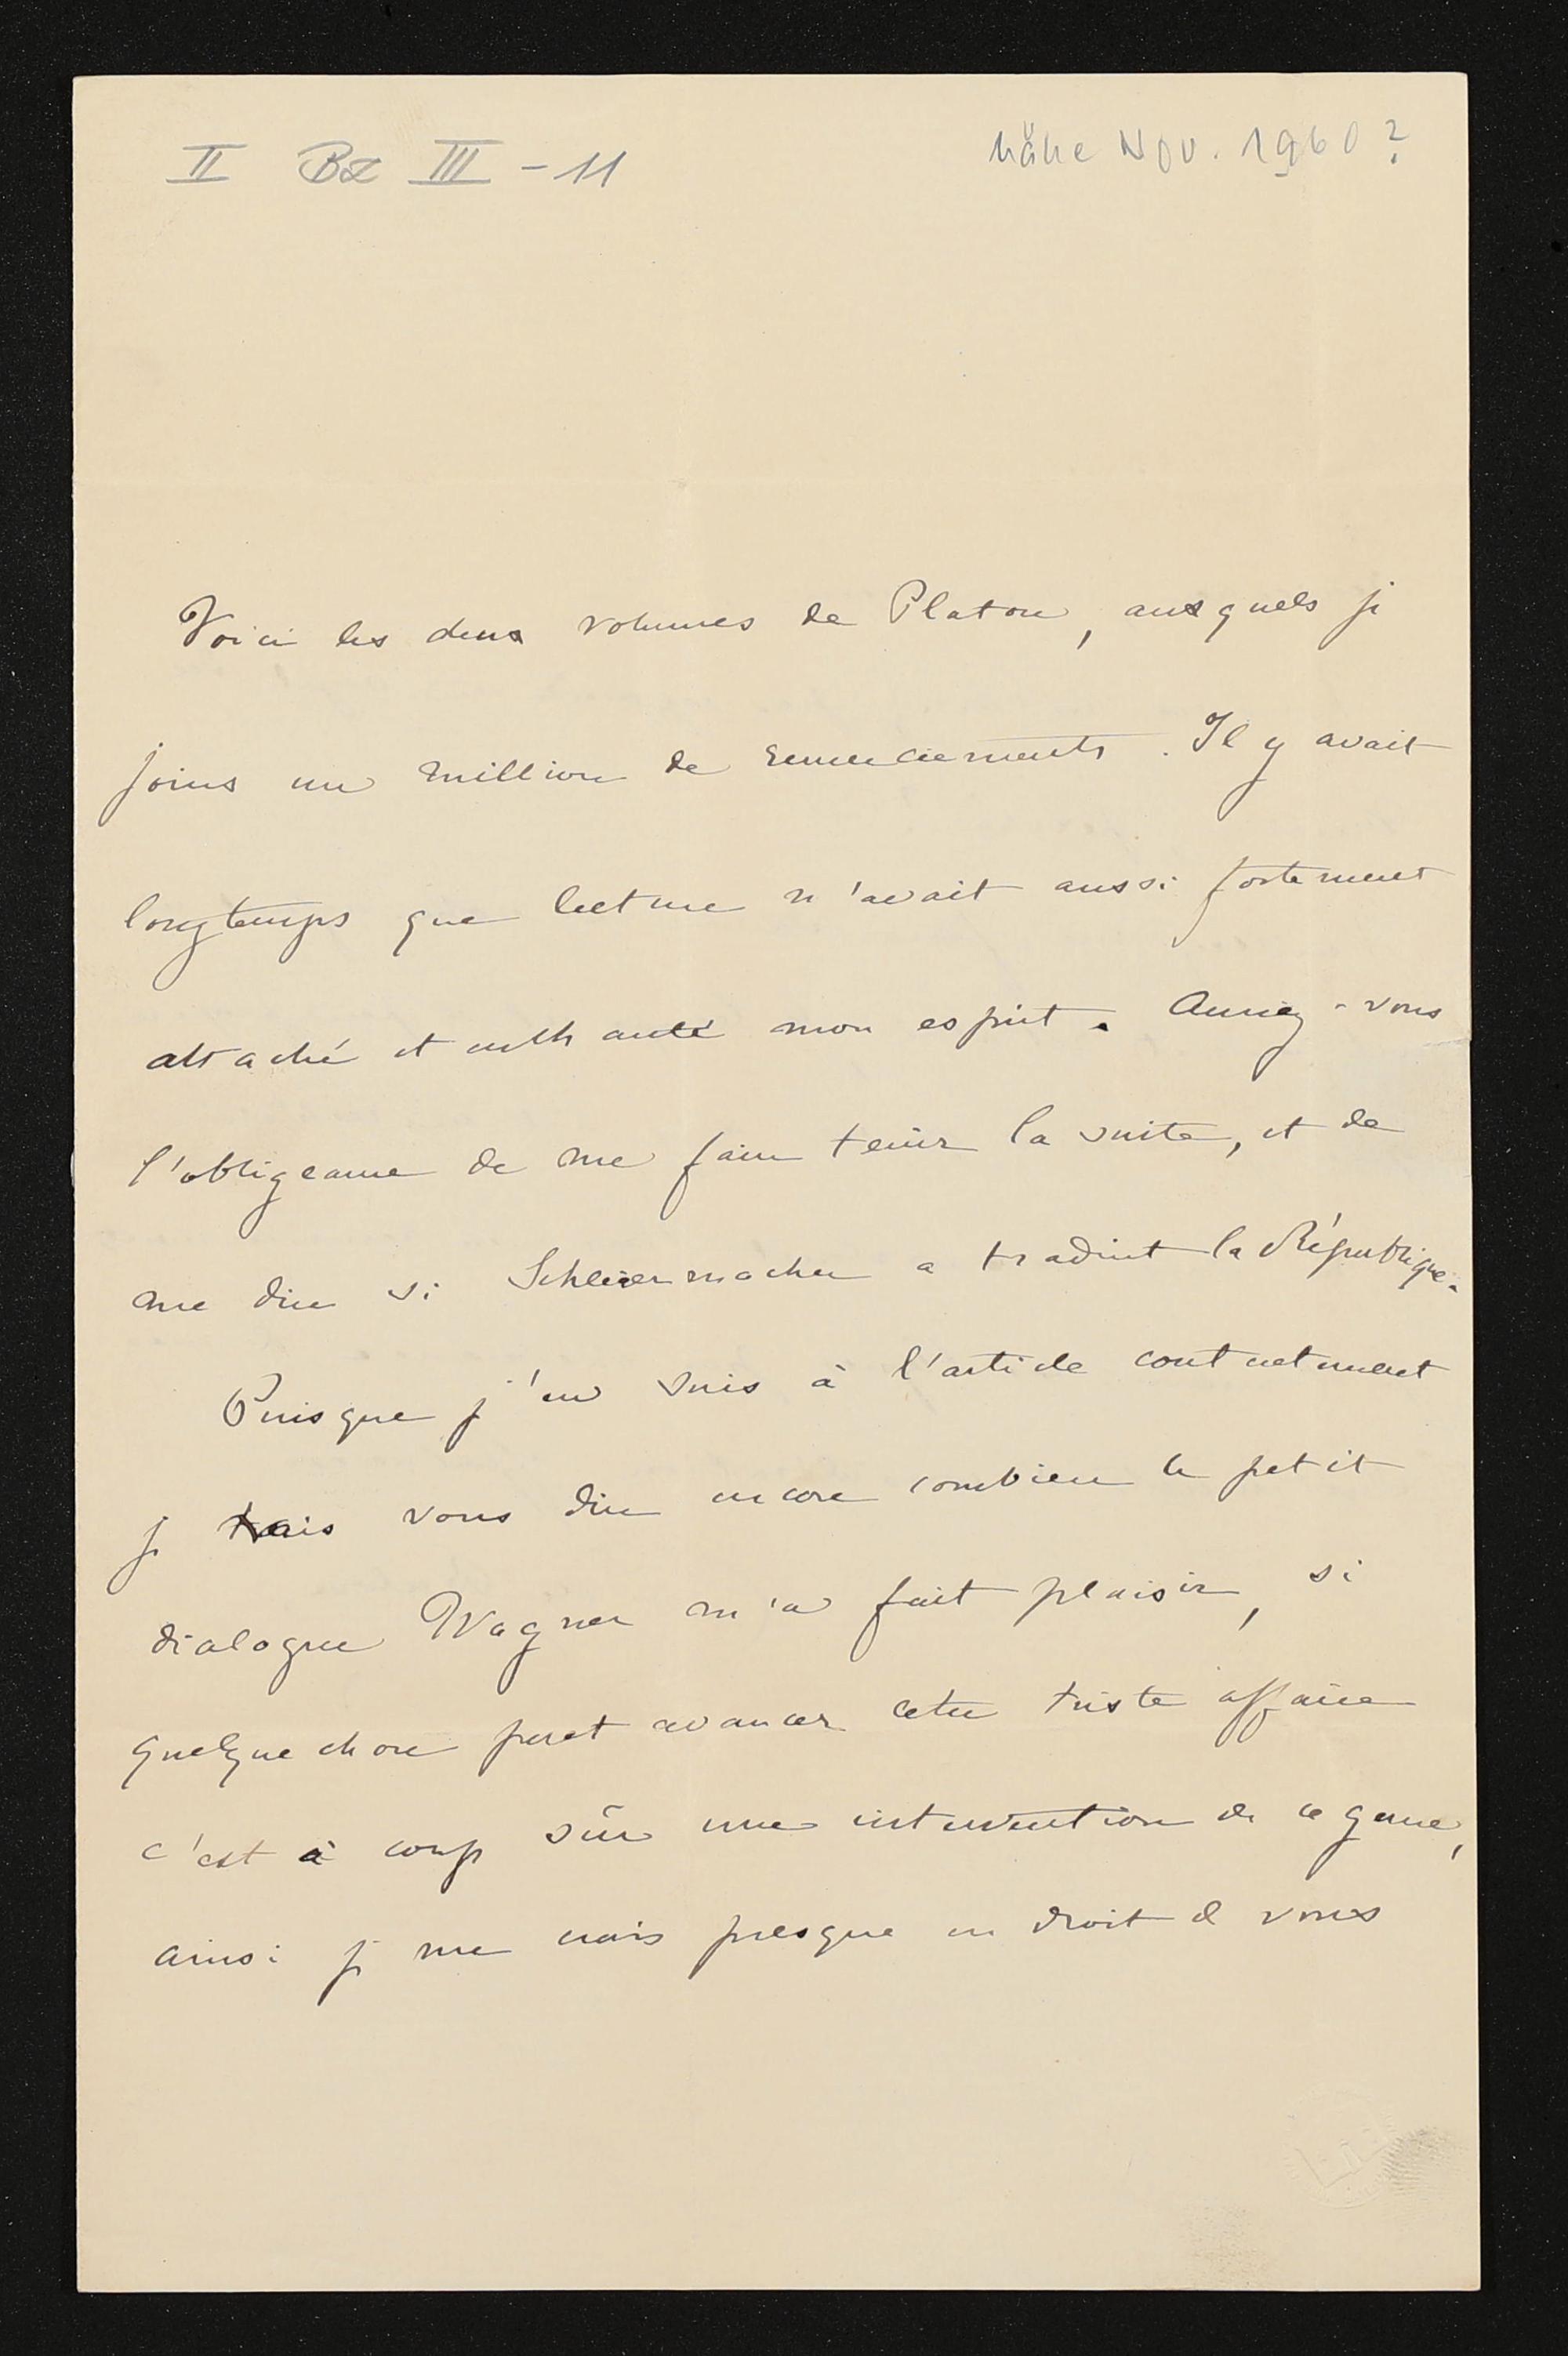 II BZ III - 11
Nähe Nov. 1960?
Voici les deux volumes de Platon, auxquels je
joins un million de remerciements. Il y avait
longtemps que lecture n'avait aussi fortement
attaché et enchanté mon esprit. Auriez-vous
l'obligeance de me faire tenir la suite, et de
me dire si Schleiermacher a traduit la République.
Puisque j'en suis à l'article contentement
je vais vous dire encore combien le petit
dialogue Wagner m'a fait plaisir, si
quelque chose peut avancer cette triste affaire
c'est à coup sûr une intervention de ce genre,
ainsi je me crois presque en droit de vous